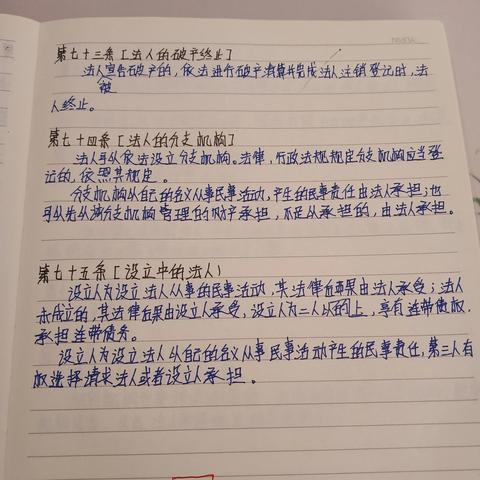 第七十三条[法人的破产终止]
法人宣告破产的,依法进行破产清算并完成法人注销登记时,法
被
人终止。
第七十四条[法人的分支机构]
法人可以依法设立分支机构。法律,行政法规规定分支机构应当登
记的,依照其规定。
分支机构以自己的名义从事民事活动,产生的民事责任由法人承担;也
可以先以该分支机构管理的财产承担,不足以承担的,由法人承担。
第七十五条[设立中的法人]
设立人为设立法人从事的民事活动,其法律后果由法人承受;法人
未成立的,其法律后果由设立人承受,设立人为二人以上,享有连带债权,
承担连带债务。
设立人为设立法人以自己的名义从事民事活动产生的民事责任,第三人有
权选择请求法人或者设立人承担。